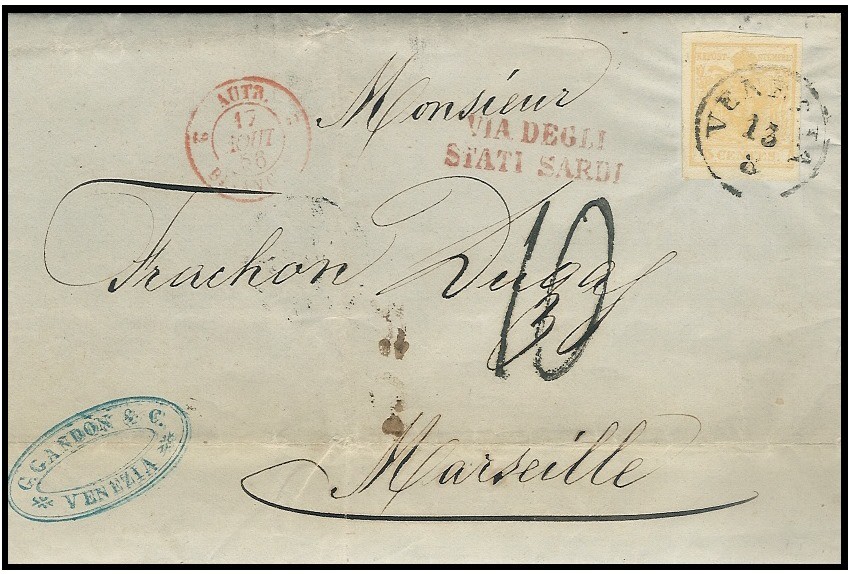 AUTR.
17
AOUT
Monsieur
VIA DEGLI
STATI SARDI
VENEZIA
13
8
Frachon Dugas
10
Marseille
G. GANDON & C.
VENEZIA